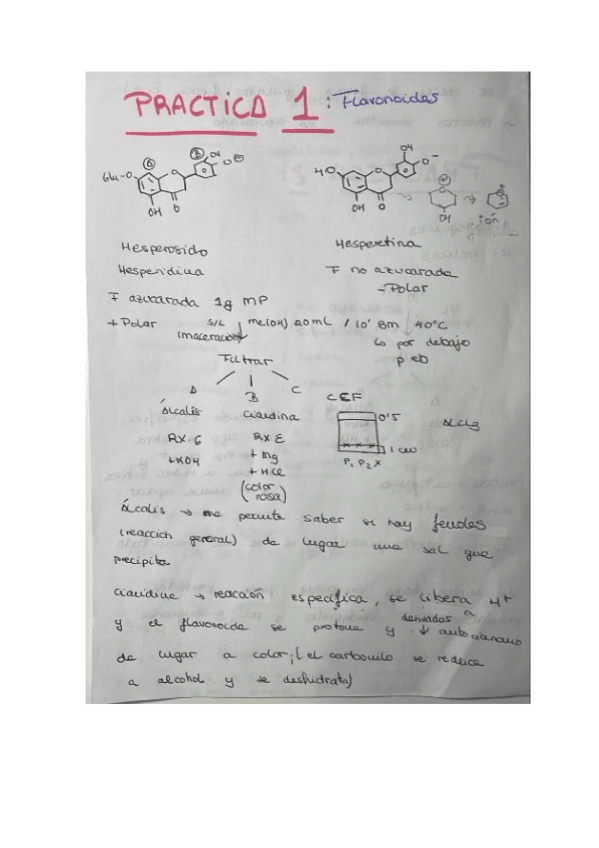 PRACTICA 1: Flavonoides
A B OH
Glu-O O O⊖
OH O
HO O OH O⁻
OH O OH ión
Hesperosido Hesperetina
Hesperidina F no azucarada
- Polar
F azucarada 1g MP
+ Polar S/L MeOH 20mL / 10' BM 40ºC
(maceración) ↳ por debajo
Filtrar p eb
A B C CCF
Álcalis Cianidina 0'5 AlCl3
RX G RX E 1 cm
+ KOH + Mg P1 P2 X
+ HCl
(color
rosa)
Álcalis → me permite saber si hay fenoles
(reacción general) da lugar una sal que
precipita
Cianidina → reacción específica, se libera H+
y el flavonoide se protona y ↓ derivados a antocianano
da lugar a color; (el carbonilo se reduce
a alcohol y se deshidrata)